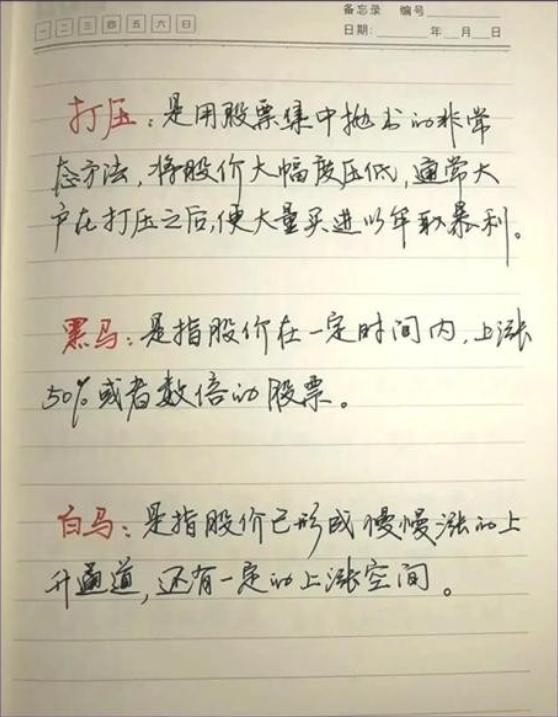 备忘录 编号
一 二 三 四 五 六 日 日期: 年 月 日
打压：是用股票集中抛出的非常
态方法，将股价大幅度压低，通常大
户在打压之后，便大量买进以牟取暴利。
黑马：是指股价在一定时间内，上涨
50%或者数倍的股票。
白马：是指股价已形成慢慢涨的上
升通道，还有一定的上涨空间。